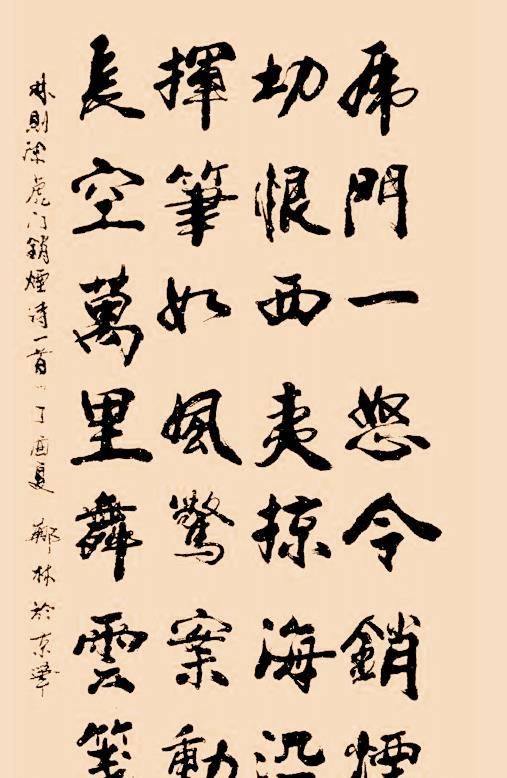 虎門一怒令銷煙
切恨西夷掠海沿
揮筆如風驚案動
長空萬里舞雲箋
林則徐虎门銷煙诗一首 丁酉夏 鄭林於京華